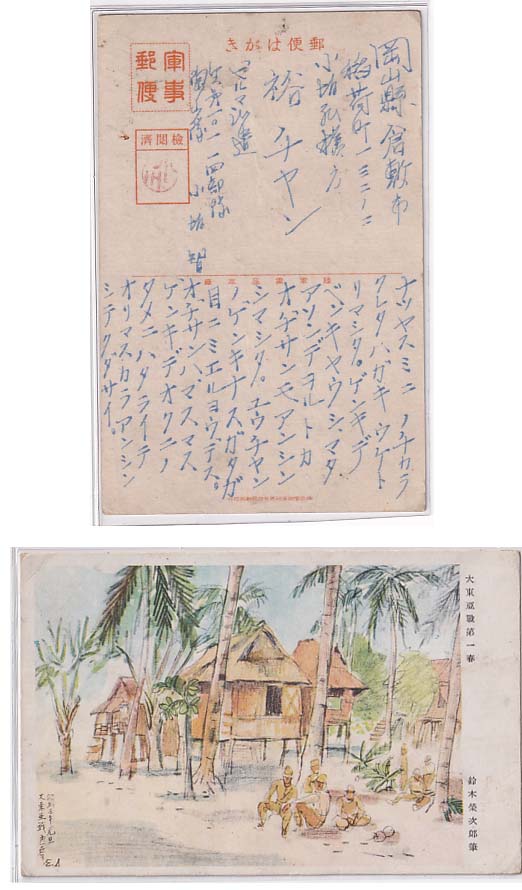 郵便はがき
軍事郵便
檢閲濟
岡山縣倉敷市
稲荷町一三二ノ二
小坂弘様方
裕チヤン
ビルマ派遣
小坂
ナツヤスミニノチカラ
クレタハガキウケト
リマシタ。ゲンキデ
ベンキヤウシ、マタ
アソンデヲルトカ
オヂサンモアンシン
シマシタ。ユウチヤン
ノゲンキナスガタガ
目ニミエルヨウデス。
オヂサンハマスマス
ゲンキデオクニノ
タメニハタライテ
オリマスカラアンシン
シテクダサイ。
大東亞戰第一春
鈴木榮次郎筆
E.S